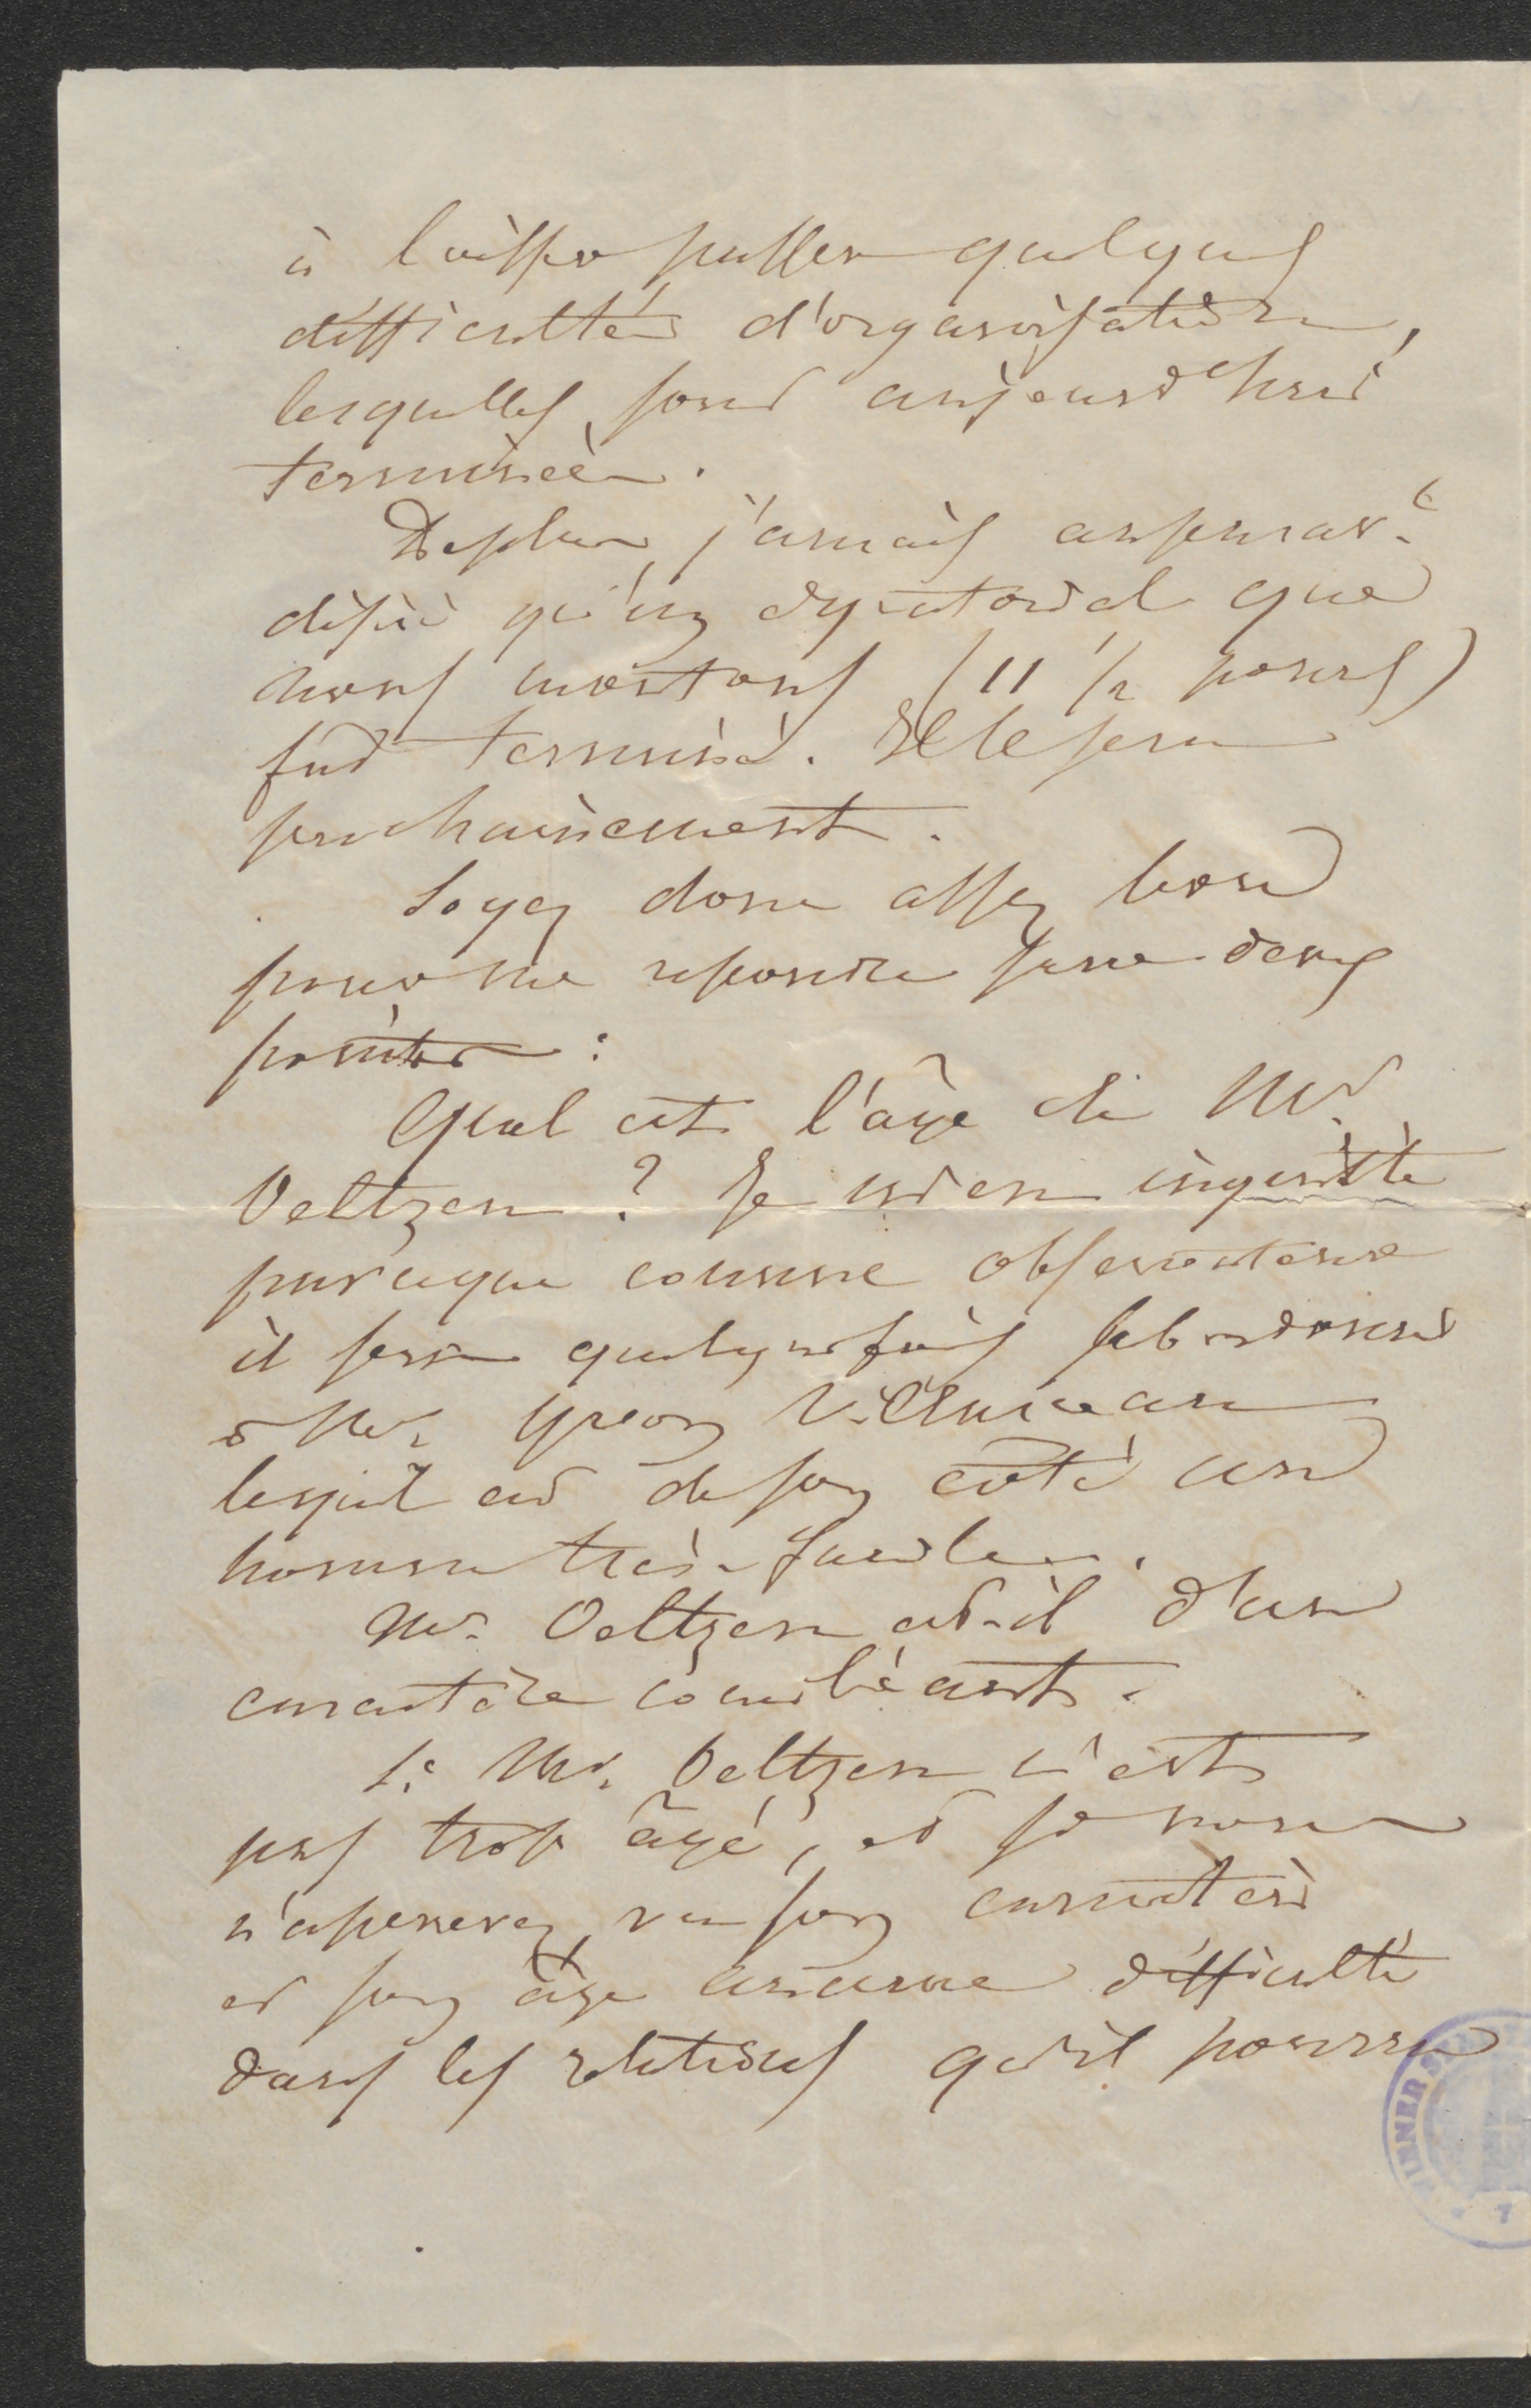 à laisser passer quelques
difficultés d'organisation,
lesquelles sont aujourd'hui
terminées.
De plus, j'aurais auparavt
désiré qu'un équatorial que
nous montons (11 1/2 pouces)
fut terminé. Il le sera
prochainement.
Soyez donc assez bon
pour me repondre sur deux
points :
Quel est l'âge de Mr.
Oeltzen ? Je m'en inquiète
parceque comme observateur
il sera quelquefois subordonné
à Mr. Yvon Villarceau
lequel est de son côté un
homme très facile.
Mr. Oeltzen est-il d'un
caractère conciliant.
Si Mr. Oeltzen n'est
pas trop âgé, et si vous
n'apercevez vu son caractère
et son âge aucune difficulté
dans les relations qu'il pourra